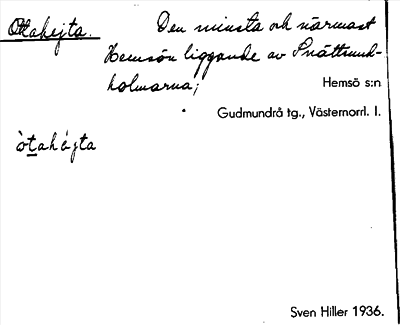 Ottahejta. Den minsta och närmast
Hemsön liggande av Prättsund-
holmarna; Hemsö s:n
Gudmundrå tg., Västernorrl. l.
òtahéjta
Sven Hiller 1936.